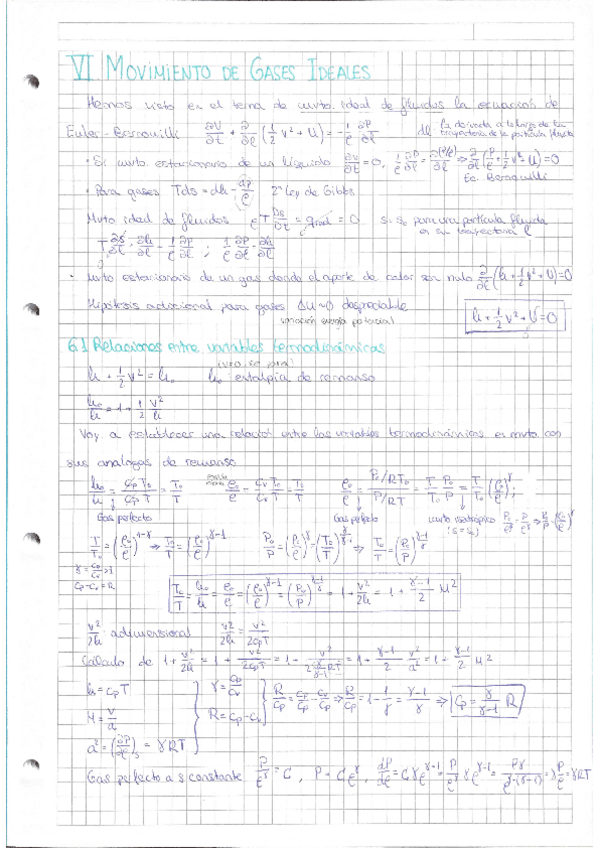 VI MOVIMIENTO DE GASES IDEALES
Hemos visto en el tema de mvto. ideal de fluidos la ecuación de
Euler-Bernouilli ∂v/∂t + ∂/∂l (1/2 v² + U) = -1/ρ ∂P/∂l dl la derivada a lo largo de la trayectoria de la partícula fluida
• Si mvto estacionario de un líquido ∂v/∂t = 0, 1/ρ ∂P/∂l = ∂(P/ρ)/∂l ⇒ ∂/∂l (P/ρ + 1/2 v² + U) = 0
Ec. Bernouilli
• Para gases Tds = dh - dP/ρ 2ª Ley de Gibbs
Mvto ideal de fluidos ρT Ds/Dt = = 0 s = s₀ para una partícula fluida
en su trayectoria l
T ∂s/∂l = ∂h/∂l - 1/ρ ∂P/∂l ; 1/ρ ∂P/∂l = ∂h/∂l
• mvto estacionario de un gas donde el aporte de calor son nulo ∂/∂l (h + 1/2 v² + U) = 0
Hipótesis adicional para gases ΔU ≈ 0 despreciable
variación energía potencial
h + 1/2 v² + U = 0
6.1 Relaciones entre variables termodinámicas
h + 1/2 v² = h₀ h₀ entalpía de remanso
h₀/h = 1 + 1/2 v²/h
Voy a establecer una relación entre las variables termodinámicas en mvto con
sus análogas de remanso
h₀/h = cpT₀/cpT = T₀/T e₀/e = cvT₀/cvT = T₀/T ρ₀/ρ = P₀/RT₀ / P/RT = T/T₀ P₀/P = T/T₀ (ρ₀/ρ)^γ ;
Gas perfecto Gas perfecto mvto isentrópico P₀/ρ₀^γ = P/ρ^γ ⇒ P₀/P = (ρ₀/ρ)^γ
(s = s₀)
T/T₀ = (ρ₀/ρ)^1-γ ⇒ T₀/T = (ρ₀/ρ)^γ-1 P₀/P = (ρ₀/ρ)^γ = (T₀/T)^γ/γ-1 ⇒ T₀/T = (P₀/P)^γ-1/γ
cp - cv = R
T₀/T = h₀/h = e₀/e = (ρ₀/ρ)^γ-1 = (P₀/P)^γ-1/γ = 1 + v²/2h = 1 + γ-1/2 M²
v²/2h adimensional v²/2h = v²/2cpT
Calculo de 1 + v²/2h = 1 + v²/2cpT = 1 + v²/2 γ/γ-1 RT = 1 + γ-1/2 v²/a² = 1 + γ-1/2 M²
h = cpT γ = cp/cv
M = v/a R = cp - cv R/cp = cp/cp - cv/cp ⇒ R/cp = 1 - 1/γ = γ-1/γ ⇒ cp = γ/γ-1 R
a² = (∂P/∂ρ)s = γRT
Gas perfecto a s constante P/ρ^γ = C, P = Cρ^γ, dP/dρ = Cγρ^γ-1 = P/ρ^γ γρ^γ-1 = Pγ/ρ^γ-(γ-1) = γ P/ρ = γRT